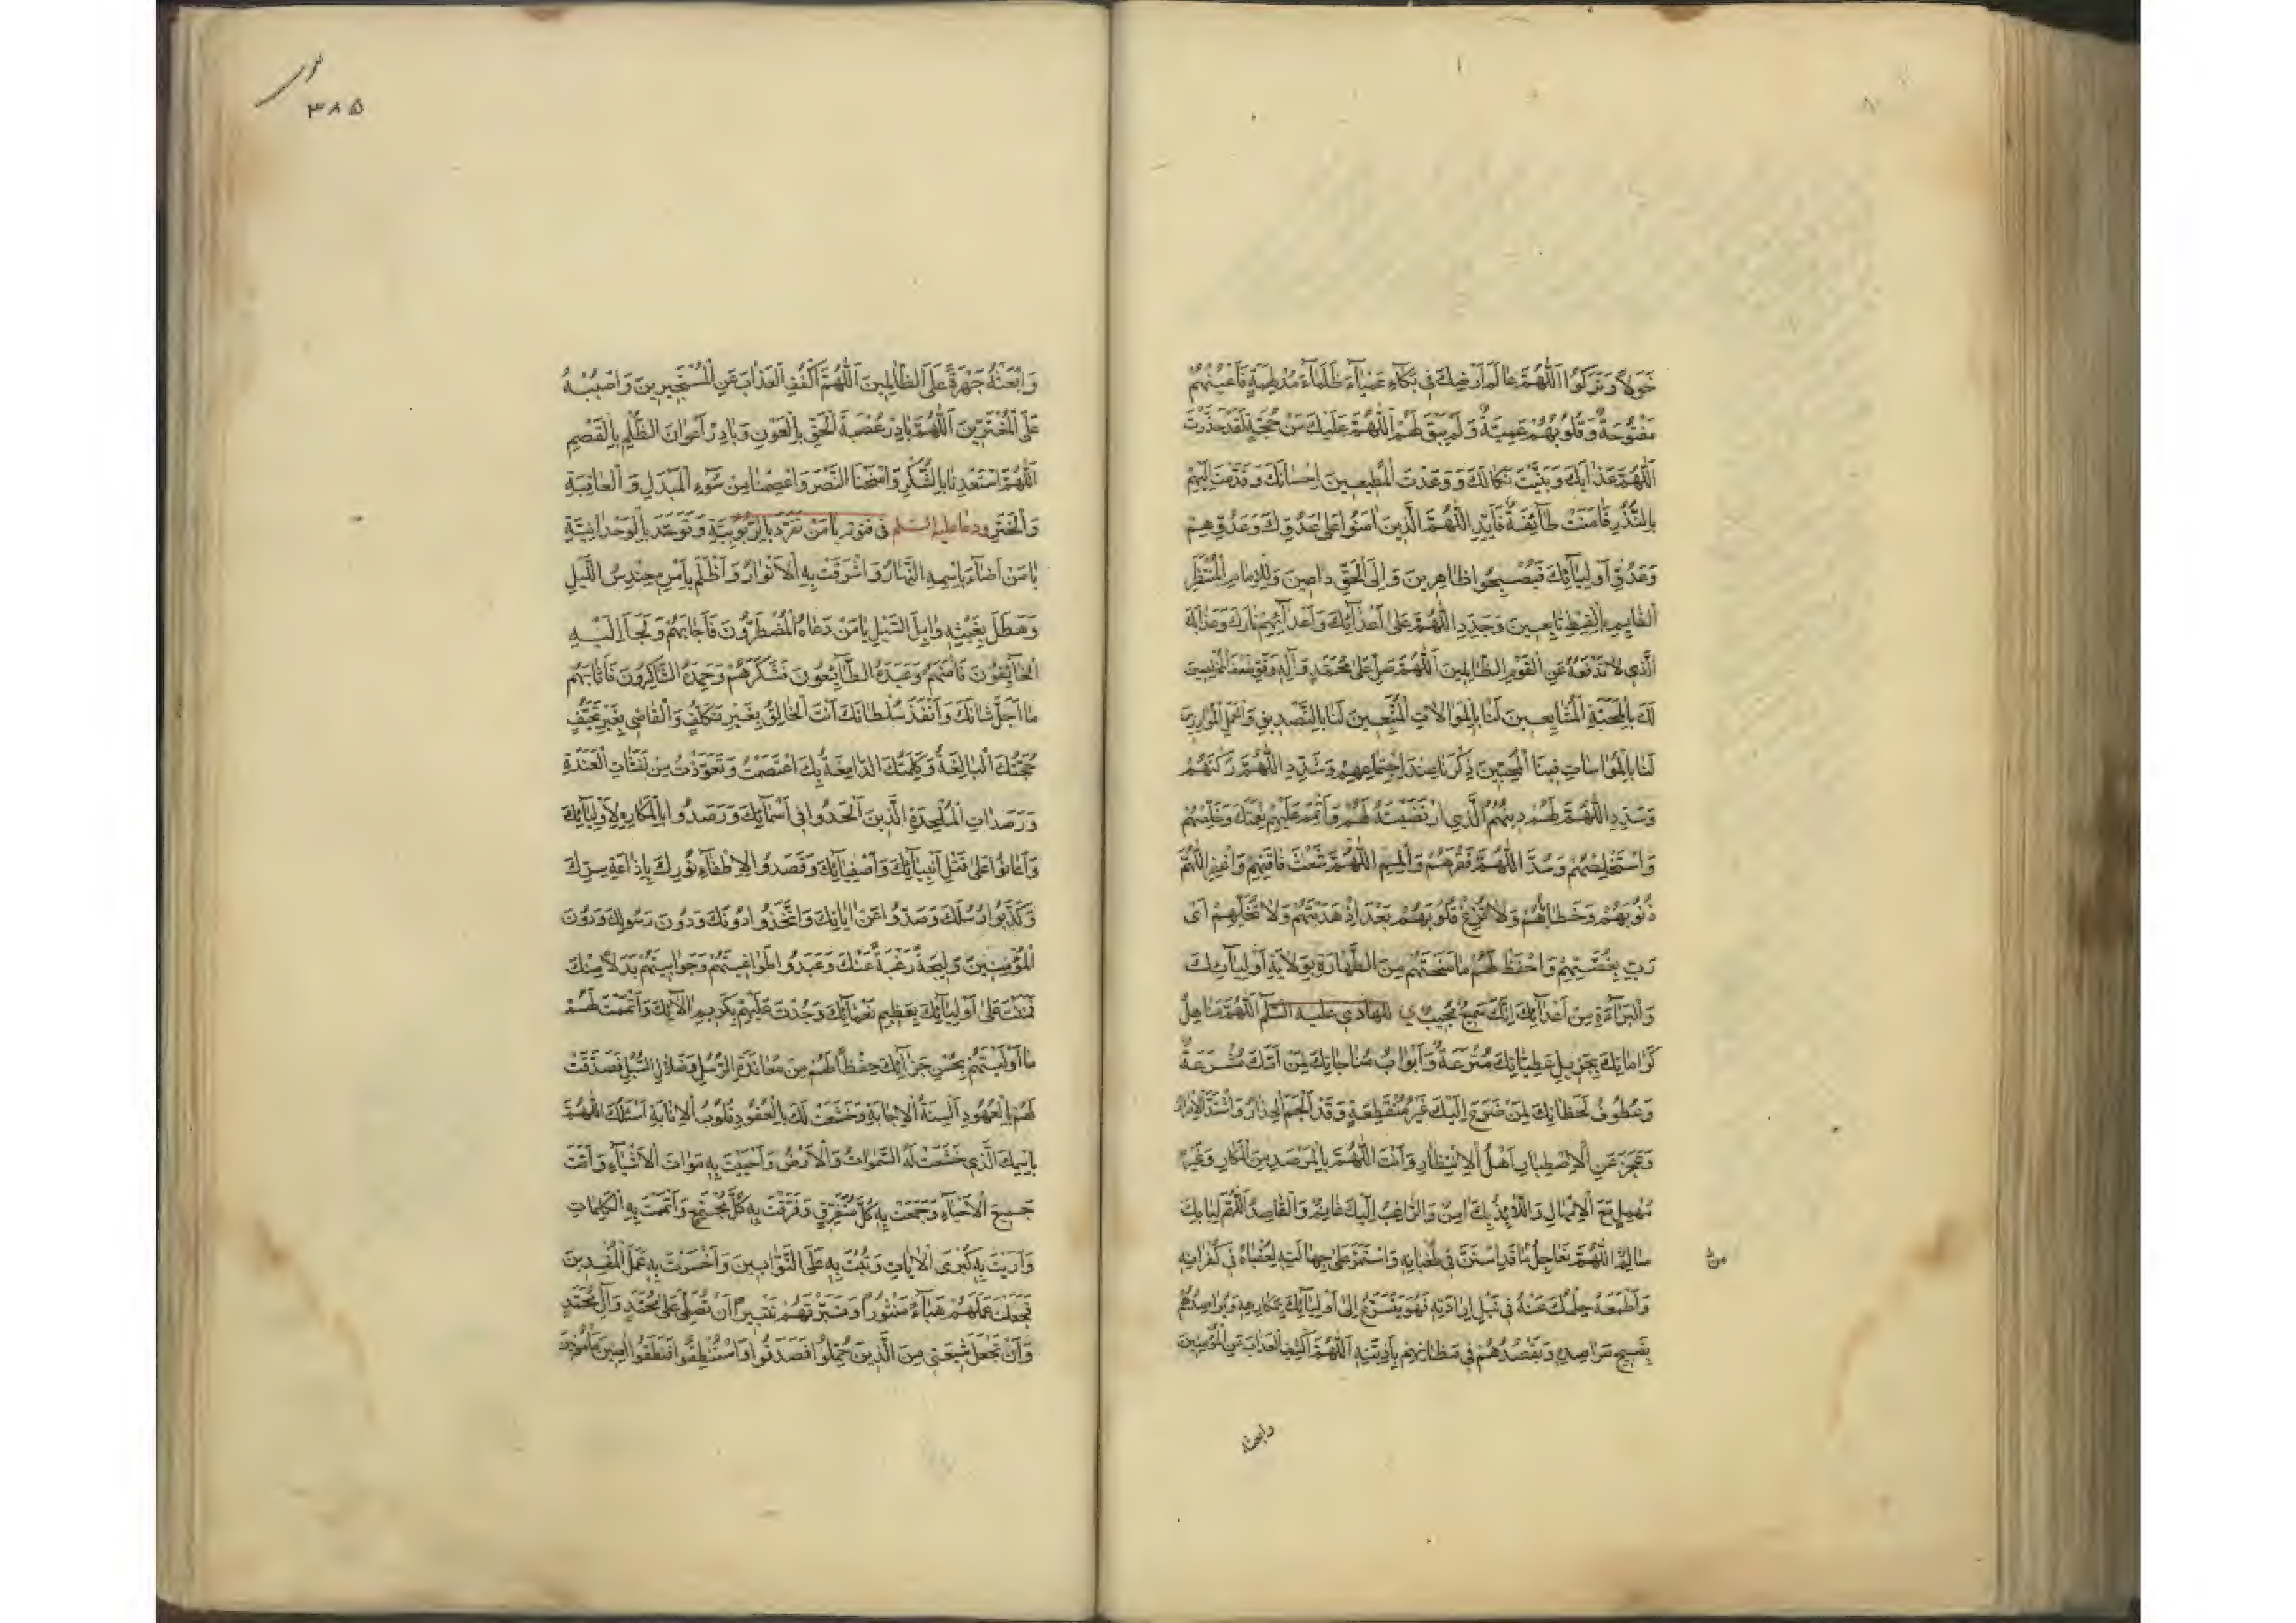 خَوَلاً وَتَرَكُوا اللّٰهُمَّ عَالَمَ اَرْضِكَ فِى بَكْمَاءَ عَمْيَاءَ ظَلْمَاءَ مُدْلَهِمَّةٍ فَاَعْيُنُهُمْ
مَفْتُوحَةٌ وَقُلُوبُهُمْ عَمِيَّةٌ وَلَمْ يَبْقَ لَهُمُ اللّٰهُمَّ عَلَيْكَ مِنْ حُجَّةٍ لَقَدْ حَذَّرْتَ
اللّٰهُمَّ عَذَابَكَ وَبَيَّنْتَ نَكَالَكَ وَوَعَدْتَ الْمُطِيعِينَ اِحْسَانَكَ وَقَدَّمْتَ اِلَيْهِمْ
بِالنُّذُرِ فَاٰمَنَتْ طَآئِفَةٌ فَاَيِّدِ اللّٰهُمَّ الَّذِينَ اٰمَنُوا عَلٰى عَدُوِّكَ وَعَدُوِّهِمْ
وَعَدُوِّ اَوْلِيَآئِكَ فَيُصْبِحُوا ظَاهِرِينَ وَاِلَى الْحَقِّ دَاعِينَ وَلِلْاِمَامِ الْمُنْتَظَرِ
الْقَآئِمِ بِالْقِسْطِ تَابِعِينَ وَجَدِّدِ اللّٰهُمَّ عَلٰى اَعْدَآئِكَ وَاَعْدَآئِهِمْ نَارَكَ وَعَذَابَكَ
الَّذِى لَا تَدْفَعُهُ عَنِ الْقَوْمِ الظَّالِمِينَ اَللّٰهُمَّ صَلِّ عَلٰى مُحَمَّدٍ وَاٰلِهِ وَقَوِّ ضَعْفَ الْمُخْلِصِينَ
لَكَ بِالْمَحَبَّةِ الْمُشَايِعِينَ لَنَا بِالْمُوَالَاتِ الْمُتَّبِعِينَ لَنَا بِالتَّصْدِيقِ وَالْعَمَلِ الْمُوَازِرِينَ
لَنَا بِالْمُوَاسَاتِ فِينَا الْمُحِبِّينَ ذِكْرَنَا عِنْدَ اجْتِمَاعِهِمْ وَشَدِّدِ اللّٰهُمَّ رُكْنَهُمْ
وَسَدِّدِ اللّٰهُمَّ لَهُمْ دِينَهُمُ الَّذِى ارْتَضَيْتَهُ لَهُمْ وَاَتْمِمْ عَلَيْهِمْ نِعْمَتَكَ وَخَلِّصْهُمْ
وَاسْتَخْلِصْهُمْ وَسُدَّ اللّٰهُمَّ فَقْرَهُمْ وَالْمُمِ اللّٰهُمَّ شَعَثَ فَاقَتِهِمْ وَاغْفِرِ اللّٰهُمَّ
ذُنُوبَهُمْ وَخَطَايَاهُمْ وَلَا تُزِغْ قُلُوبَهُمْ بَعْدَ اِذْ هَدَيْتَهُمْ وَلَا تُخَلِّهِمْ اَىْ
رَبِّ بِمَعْصِيَتِهِمْ وَاحْفَظْ لَهُمْ مَا مَنَحْتَهُمْ مِنَ الطَّهَارَةِ بِوِلَايَةِ اَوْلِيَآئِكَ
وَالْبَرَآءَةِ مِنْ اَعْدَآئِكَ اِنَّكَ سَمِيعٌ مُجِيبٌ للهادى عليه السلم اَللّٰهُمَّ مَنَاهِلُ
كَرَامَاتِكَ بِجَزِيلِ عَطِيَّاتِكَ مُتْرَعَةٌ وَاَبْوَابُ مُنَاجَاتِكَ لِمَنْ اَمَّكَ مُشْرَعَةٌ
وَعَطُوفُ لَحَظَاتِكَ لِمَنْ ضَرَعَ اِلَيْكَ غَيْرُ مُنْقَطِعَةٍ وَقَدْ اُلْجِمَ الْحِذَارُ وَاشْتَدَّ الْاِضْطِرَارُ
وَعَجَزَ عَنِ الْاِصْطِبَارِ اَهْلُ الْاِنْتِظَارِ وَاَنْتَ اللّٰهُمَّ بِالْمَرْصَدِ مِنَ الْمَكَّارِ وَغَيْرُ
مُهْمِلٍ مَعَ الْاِمْهَالِ وَاللَّآئِذُ بِكَ اٰمِنٌ وَالرَّاغِبُ اِلَيْكَ غَانِمٌ وَالْقَاصِدُ اللّٰهُمَّ لِبَابِكَ
سَالِمٌ اللّٰهُمَّ فَعَاجِلْ مَنْ قَدِ اسْتَنَّ فِى طُغْيَانِهِ وَاسْتَمَرَّ عَلٰى جَهَالَتِهِ لِعُقْبَاهُ فِى كُفْرَانِهِ
وَاَطْمَعَهُ حِلْمُكَ عَنْهُ فِى نَيْلِ اِرَادَتِهِ فَهُوَ يَتَسَرَّعُ اِلٰى اَوْلِيَآئِكَ بِمَكَارِهِهِ وَيُوَاصِلُهُمْ
بِقَبِيحِ مَرَاصِدِهِ وَيَقْصُدُهُمْ فِى مَظَانِّهِمْ بِاَذِيَّتِهِ اَللّٰهُمَّ اكْشِفِ الْعَذَابَ عَنِ الْمُؤْمِنِينَ
وابعثه
٣٨٥
وَابْعَثْهُ جَهْرَةً عَلَى الظَّالِمِينَ اَللّٰهُمَّ اكْفُفِ الْعَذَابَ عَنِ الْمُسْتَجِيرِينَ وَاصْبُبْهُ
عَلَى الْمُغْتَرِّينَ اَللّٰهُمَّ بَادِرْ عُصْبَةَ الْحَقِّ بِالْعَوْنِ وَبَادِرْ اَعْوَانَ الظُّلْمِ بِالْقَصْمِ
اَللّٰهُمَّ اَسْعِدْنَا بِالشُّكْرِ وَامْنَحْنَا النَّصْرَ وَاَعِصْمْنَا مِنْ سُوٓءِ الْمَبْدَلِ وَالْعَاقِبَةِ
وَالْخَتْرِ ودعا عليه السلم فى قنوته يَا مَنْ تَفَرَّدَ بِالرُّبُوبِيَّةِ وَتَوَحَّدَ بِالْوَحْدَانِيَّةِ
يَا مَنْ اَضَآءَ بِاسْمِهِ النَّهَارُ وَاَشْرَقَتْ بِهِ الْاَنْوَارُ وَاَظْلَمَ بِاَمْرِهِ حِنْدِسُ اللَّيْلِ
وَهَطَلَ بِغَيْثِهِ وَابِلُ السَّيْلِ يَا مَنْ دَعَاهُ الْمُضْطَرُّونَ فَاَجَابَهُمْ وَلَجَاَ اِلَيْهِ
الْخَآئِفُونَ فَاٰمَنَهُمْ وَعَبَدَهُ الطَّآئِعُونَ فَشَكَرَهُمْ وَحَمِدَهُ الشَّاكِرُونَ فَاَثَابَهُمْ
مَا اَجَلَّ شَاْنَكَ وَاَنْفَذَ سُلْطَانَكَ اَنْتَ الْخَالِقُ بِغَيْرِ تَكَلُّفٍ وَالْقَاضِى بِغَيْرِ تَحَيُّفٍ
حُجَّتُكَ الْبَالِغَةُ وَكَلِمَتُكَ الدَّامِغَةُ بِكَ اعْتَصَمْتُ وَتَعَوَّذْتُ مِنْ نَفَثَاتِ الْعَنَدَةِ
وَرَصَدَاتِ الْمُلْحِدَةِ الَّذِينَ اَلْحَدُوا فِى اَسْمَآئِكَ وَرَصَدُوا بِالْمَكَارِهِ لِاَوْلِيَآئِكَ
وَاَعَانُوا عَلٰى قَتْلِ اَنْبِيَآئِكَ وَاَصْفِيَآئِكَ وَقَصَدُوا لِاِطْفَآءِ نُورِكَ بِاِذَاعَةِ سِرِّكَ
وَكَذَّبُوا رُسُلَكَ وَصَدُّوا عَنْ اٰيَاتِكَ وَاتَّخَذُوا دُونَكَ وَدُونَ رَسُولِكَ وَدُونَ
الْمُؤْمِنِينَ وَلِيجَةً رَغْبَةً عَنْكَ وَعَبَدُوا طَوَاغِيتَهُمْ وَجَوَابِيتَهُمْ بَدَلًا مِنْكَ
فَمَنَنْتَ عَلٰى اَوْلِيَآئِكَ بِعَظِيمِ نَعْمَآئِكَ وَجُدْتَ عَلَيْهِمْ بِكَرِيمِ اٰلَآئِكَ وَاَتْمَمْتَ لَهُمْ
مَا اَوْلَيْتَهُمْ بِحُسْنِ جَزَآئِكَ حِفْظًا لَهُمْ مِنْ مُعَانَدَةِ الرُّسُلِ وَضَلَالِ السُّبُلِ فَصَدَّقَتْ
لَهُمْ بِالْعُهُودِ اَلْسِنَةُ الْاِجَابَةِ وَخَشَعَتْ لَكَ بِالْعُقُودِ قُلُوبُ الْاِنَابَةِ اَسْئَلُكَ اللّٰهُمَّ
بِاسْمِكَ الَّذِى خَشَعَتْ لَهُ السَّمٰوَاتُ وَالْاَرْضُ وَاَحْيَيْتَ بِهِ مَوَاتَ الْاَشْيَآءِ وَاَمَتَّ
جَمِيعَ الْاَحْيَآءِ وَجَمَعْتَ بِهِ كُلَّ مُتَفَرِّقٍ وَفَرَّقْتَ بِهِ كُلَّ مُجْتَمِعٍ وَاَتْمَمْتَ بِهِ الْكَلِمَاتِ
وَاَرَيْتَ بِهِ كُبْرَى الْاٰيَاتِ وَتُبْتَ بِهِ عَلَى التَّوَّابِينَ وَاَخْسَرْتَ بِهِ عَمَلَ الْمُفْسِدِينَ
فَجَعَلْتَ عَمَلَهُمْ هَبَآءً مَنْثُورًا وَتَبَّرْتَهُمْ تَتْبِيرًا اَنْ تُصَلِّىَ عَلٰى مُحَمَّدٍ وَاٰلِ مُحَمَّدٍ
وَاَنْ تَجْعَلَ شِيعَتِى مِنَ الَّذِينَ حُمِّلُوا فَصَدَقُوا وَاسْتُنْطِقُوا فَنَطَقُوا اٰمِنِينَ مَاْمُونِينَ